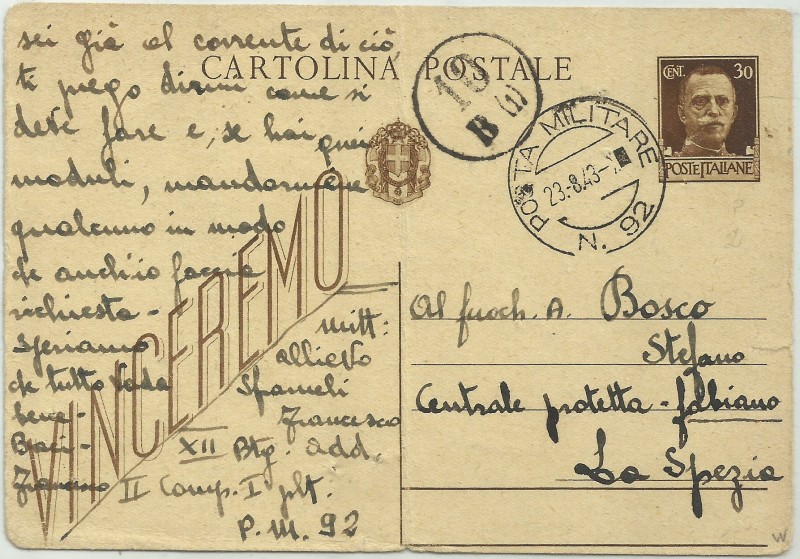 sei già al corrente di ciò,
ti prego dirmi come si
deve fare e, se hai quei
moduli, mandarmene
qualcuno in modo
che anch'io faccia
richiesta -
Speriamo
che tutto vada
bene -
Baci -
Franceso
CARTOLINA POSTALE
19
B (1)
CENT. 30
POSTE ITALIANE
POSTA MILITARE
23-8.43-X
N. 92
VINCEREMO
Mitt:
allievo
Spameli
Francesco
XII Btg. add.
II Comp. I plt.
P.M. 92
Al fuoch. A. Bosco
Stefano
Centrale protetta - fabiano
La Spezia
W